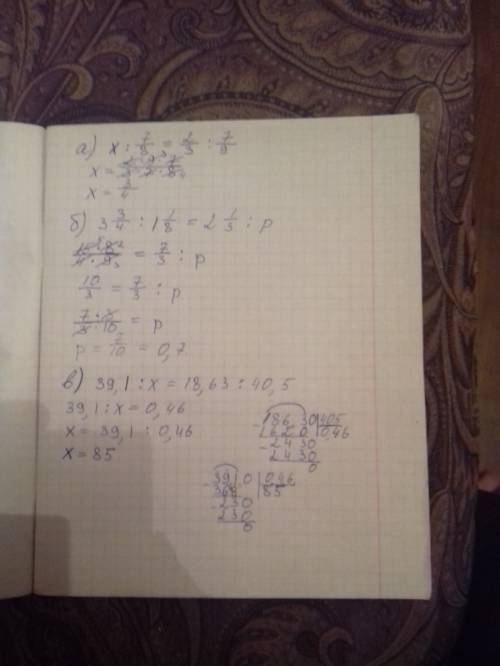 а) x : 7/8 = 2/3 : 7/9
x = 2·9·7/3·7·8
x = 3/4
б) 3 3/4 : 1 1/8 = 2 1/3 : p
15·8/4·9 = 7/3 : p
10/3 = 7/3 : p
7·3/3·10 = p
p = 7/10 = 0,7
в) 39,1 : x = 18,63 : 40,5
39,1 : x = 0,46
x = 39,1 : 0,46
x = 85
186,30 | 405
1620 | 0,46
2430
2430
0
39,1,0 | 0,46
368 | 85
230
230
0